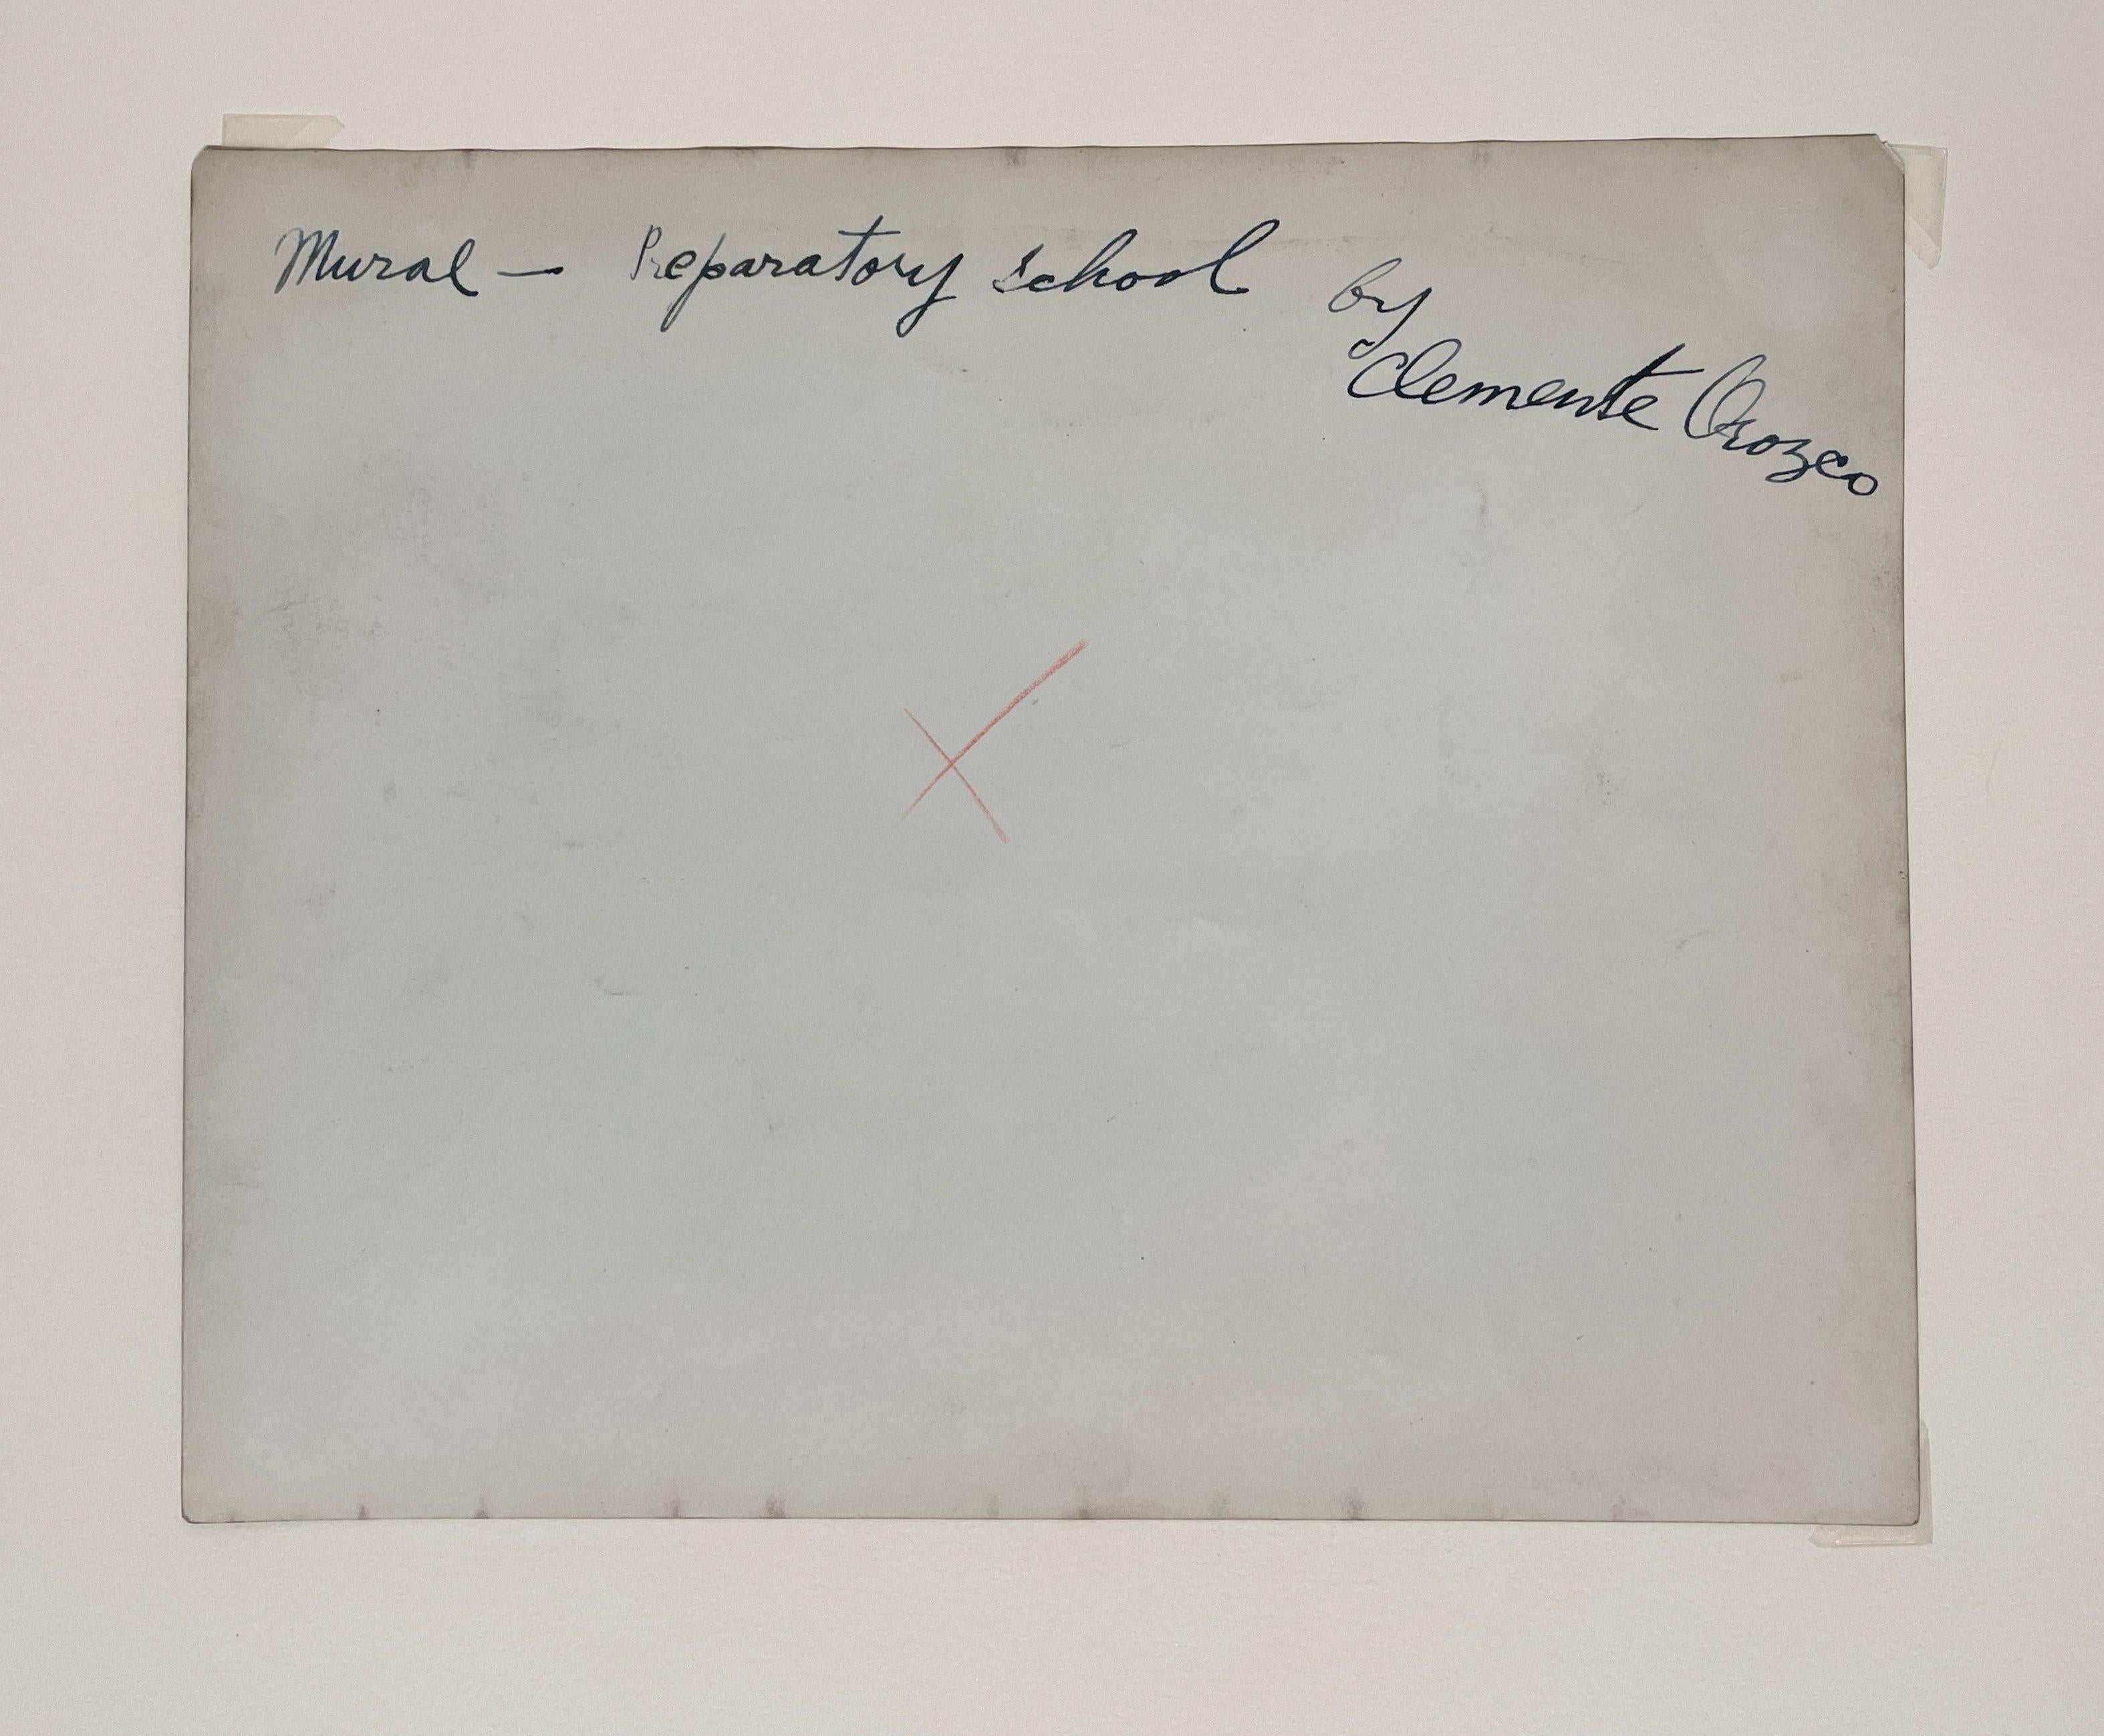 Mural — Preparatory school by
Clemente Orozco